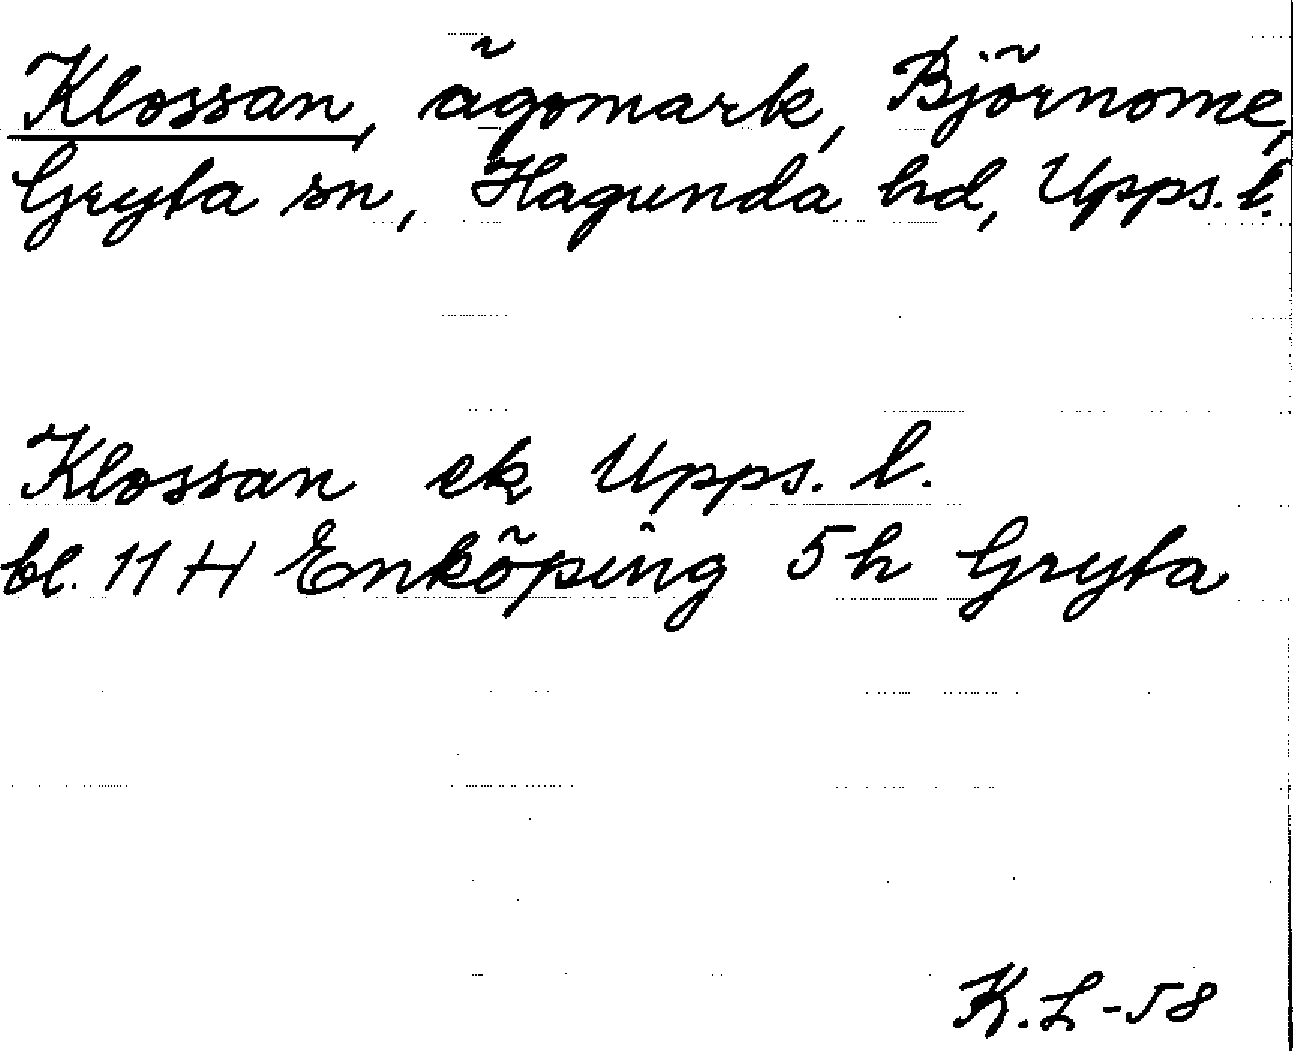 Klossan, ägomark, Björnome,
Gryta sn, Hagunda hd, Upps. l.
Klossan ek Upps. l.
bl. 11 H Enköping 5 h Gryta
K.L-58